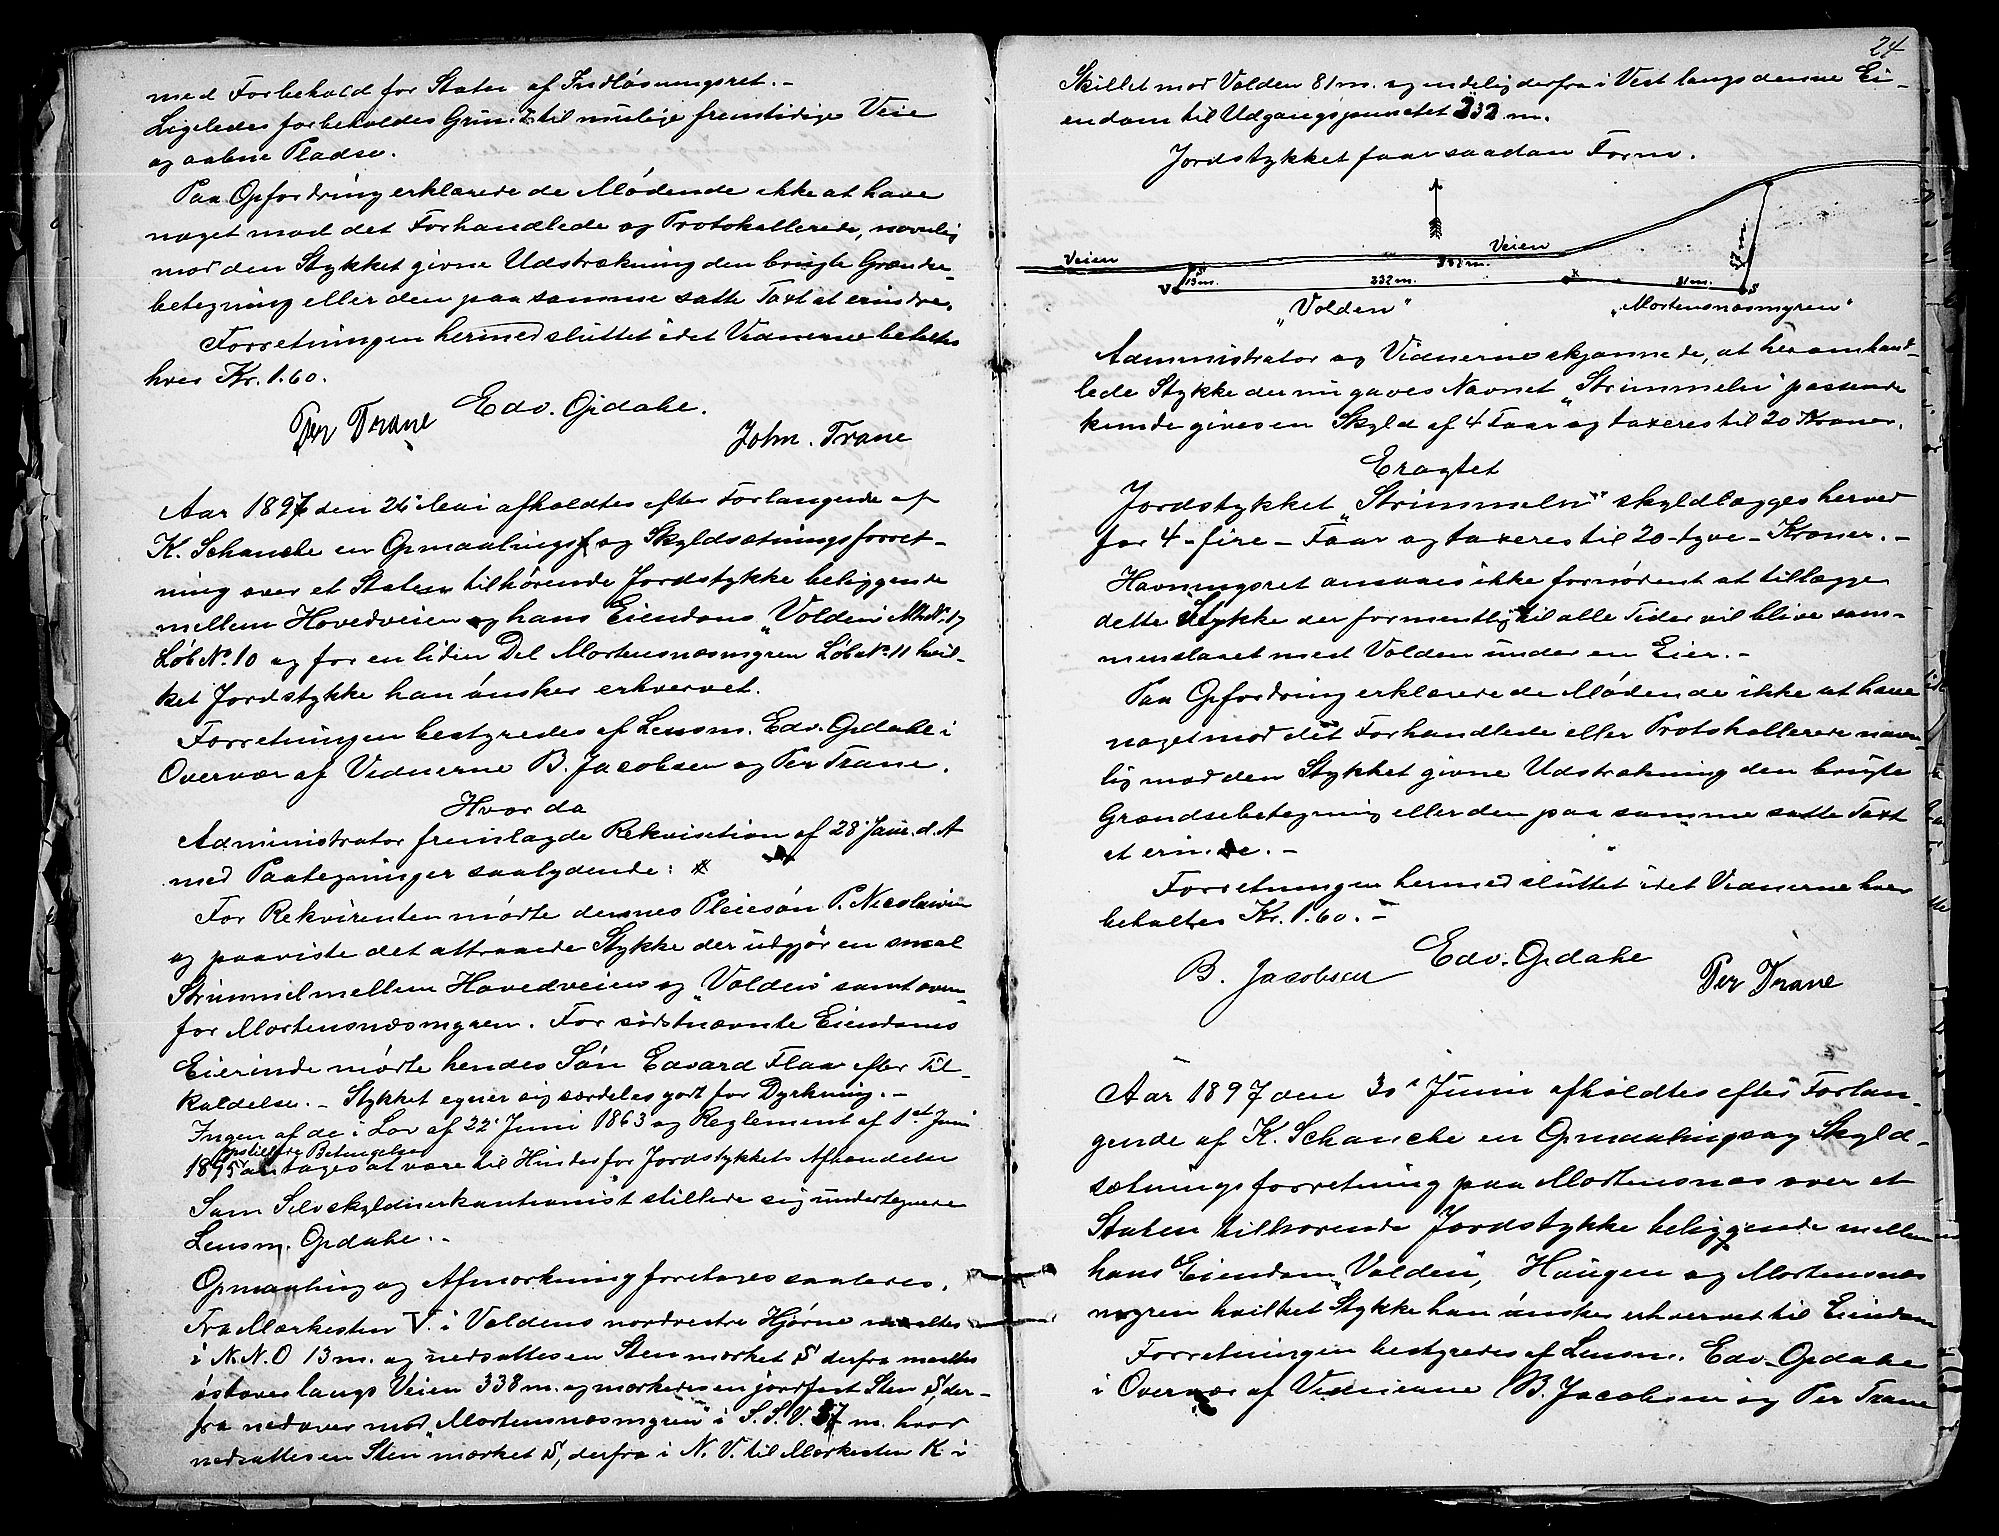 med Forbehold for Staten af Indløsningsret. -
Ligeledes forbeholdes Grund til mulige fremtidige Veie
og aabne Pladse.
Paa Opfordring erklærede de Mødende ikke at have
noget mod det Forhandlede og Protokollerede, navnlig
mod den Stykket givne Udstrækning den brugte Grændse-
betegning eller den paa samme satte Taxt at erindre.
Forretningen hermed sluttet idet Vidnerne betaltes
hver Kr. 1.60.
Edv. Opdahl.
Per Trane
John. Trane
Aar 1897 den 26' Mai afholdtes efter Forlangende af
K. Schanche en Opmaalings og Skyldsætningsforret-
ning over et Staten tilhørende Jordstykke beliggende
mellem Hovedveien og hans Eiendom "Volden" Mk No. 17
Løb No. 10 og for en liden Del Mortensnæsmyren Løb No. 11 hvil-
ket Jordstykke han ønsker erhvervet.
Forretningen bestyredes af Lensm. Edv. Opdahl i
Overvær af Vidnerne B. Jacobsen og Per Trane.
Hvor da
Administrator fremlagde Rekvisition af 28' Janr. d. A
med Paategninger saalydende: x
For Rekvirenten mødte dennes Pleiesøn P. Nicolaisen
og paaviste det attraaede Stykke der udgjør en smal
Strimmel mellem Hovedveien og "Volden" samt oven-
for Mortensnæsmyren. For sidstnævnte Eiendoms
Eierinde mødte hendes Søn Edvard Flaa efter Til-
kaldelse. - Stykket egner sig særdeles godt for Dyrkning. -
Ingen af de i Lov af 22' Juni 1863 og Reglement af 1st Juni
opstillede Betingelser
1895 antages at være til Hinder for Jordstykkets Afhændelse
Som Selvskyldnerkautionist stillede sig undertegnede
Lensm. Opdahl. -
Opmaaling og Afmærkning foretoges saaledes.
Fra Mærkesten V. i Voldens nordvestre Hjørne maaltes
i N.N.O 13 m. og nedsattes en Sten mærket S derfra maaltes
østover langs Veien 338 m. og mærkedes en jordfast Sten S, der-
fra nedover mod "Mortensnæsmyren" i S.S.V. 57 m. hvor
nedsattes en Sten mærket S, derfra i N.V. til Mærkesten K i
24
Skillet mod Volden 81 m. og endelig derfra i Vest langs denne Ei-
endom til Udgangspunctet 332 m.
Jordstykket faar saadan Form.
Veien
Veien
338 m.
57 m.
V
S
13 m.
332 m.
K
81 m.
S
"Volden"
"Mortensnæsmyren"
Administrator og Vidnerne skjønnede, at heromhand-
lede Stykke der nu gaves Navnet "Strimmeln" passende
kunde gives en Skyld af 4 Faar og taxeres til 20 Kroner.
Eragtet
Jordstykket "Strimmeln" skyldlægges herved
for 4 - fire - Faar og taxeres til 20 - tyve - Kroner. -
Havningsret ansaaes ikke fornødent at tillægge
dette Stykke der formentlig til alle Tider vil blive sam-
menslaaet med Volden under en Eier. -
Paa Opfordring erklærede de Mødende ikke at have
noget mod det Forhandlede eller Protokollerede navn-
lig mod den Stykket givne Udstrækning den brugte
Grændsebetegning eller den paa samme satte Taxt
at erindre. -
Forretningen hermed sluttet idet Vidnerne hver
betaltes Kr. 1.60. -
Edv. Opdahl
B. Jacobsen
Per Trane
Aar 1897 den 30' Juni afholdtes efter Forlan-
gende af K. Schanche en Opmaalings og Skyld-
sætningsforretning paa Mortensnæs over et
Staten tilhørende Jordstykke beliggende mellem
hans Eiendom "Volden", Haugen og Mortensnæs
myren hvilket Stykke han ønsker erhvervet til Eiendom
Forretningen bestyredes af Lensm. Edv. Opdahl
i Overvær af Vidnerne B. Jacobsen og Per Trane